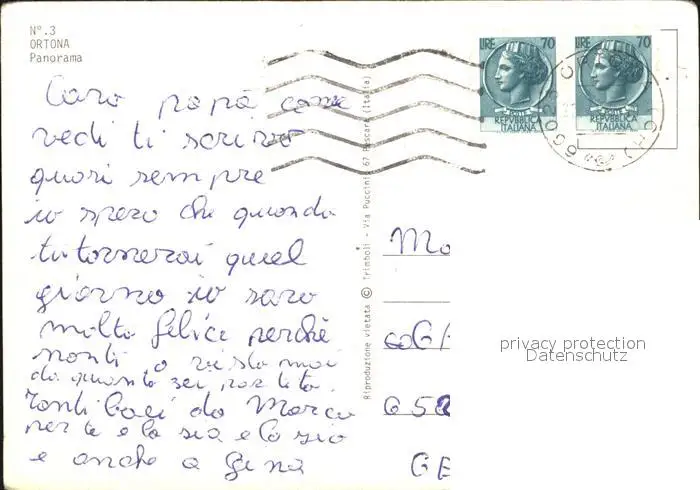 Nº.3
ORTONA
Panorama
LIRE 70
POSTE
REPVBBLICA
ITALIANA
LIRE 70
POSTE
REPVBBLICA
ITALIANA
Caro papà come
vedi ti scrivo
quasi sempre
io spero che quando
tu tornerai quel
giorno io saro
molto felice perchè
nonti o visto mai
da quanto sei partito.
Tanti baci da Marco
per te e la zia e lo zio
e anche a Gina
Riproduzione vietata © Trimboli - Via Puccini, 67 Pescara (Italia)
Mo
6
GE
privacy protection
Datenschutz